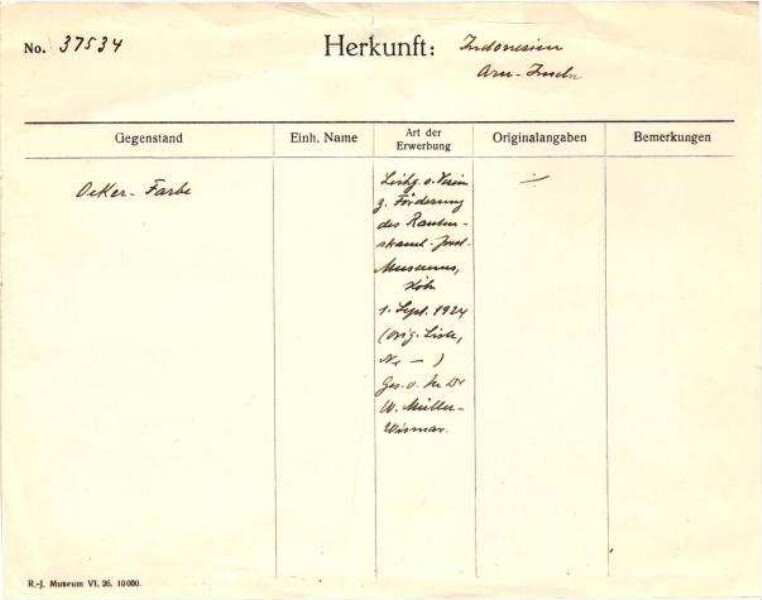 No. 37534 Herkunft: Indonesien
Aru-Inseln
Gegenstand Einh. Name Art der Erwerbung Originalangaben Bemerkungen
Ocker-Farbe
v. Verein
z. Förderung
des Rauten-
strauch-Joest-
Museums,
Köln
1. Sept. 1924
(orig. Liste,
No — )
Ges. v. Dr
W. Müller-
Wismar.
R.-J. Museum VI. 26. 10000.